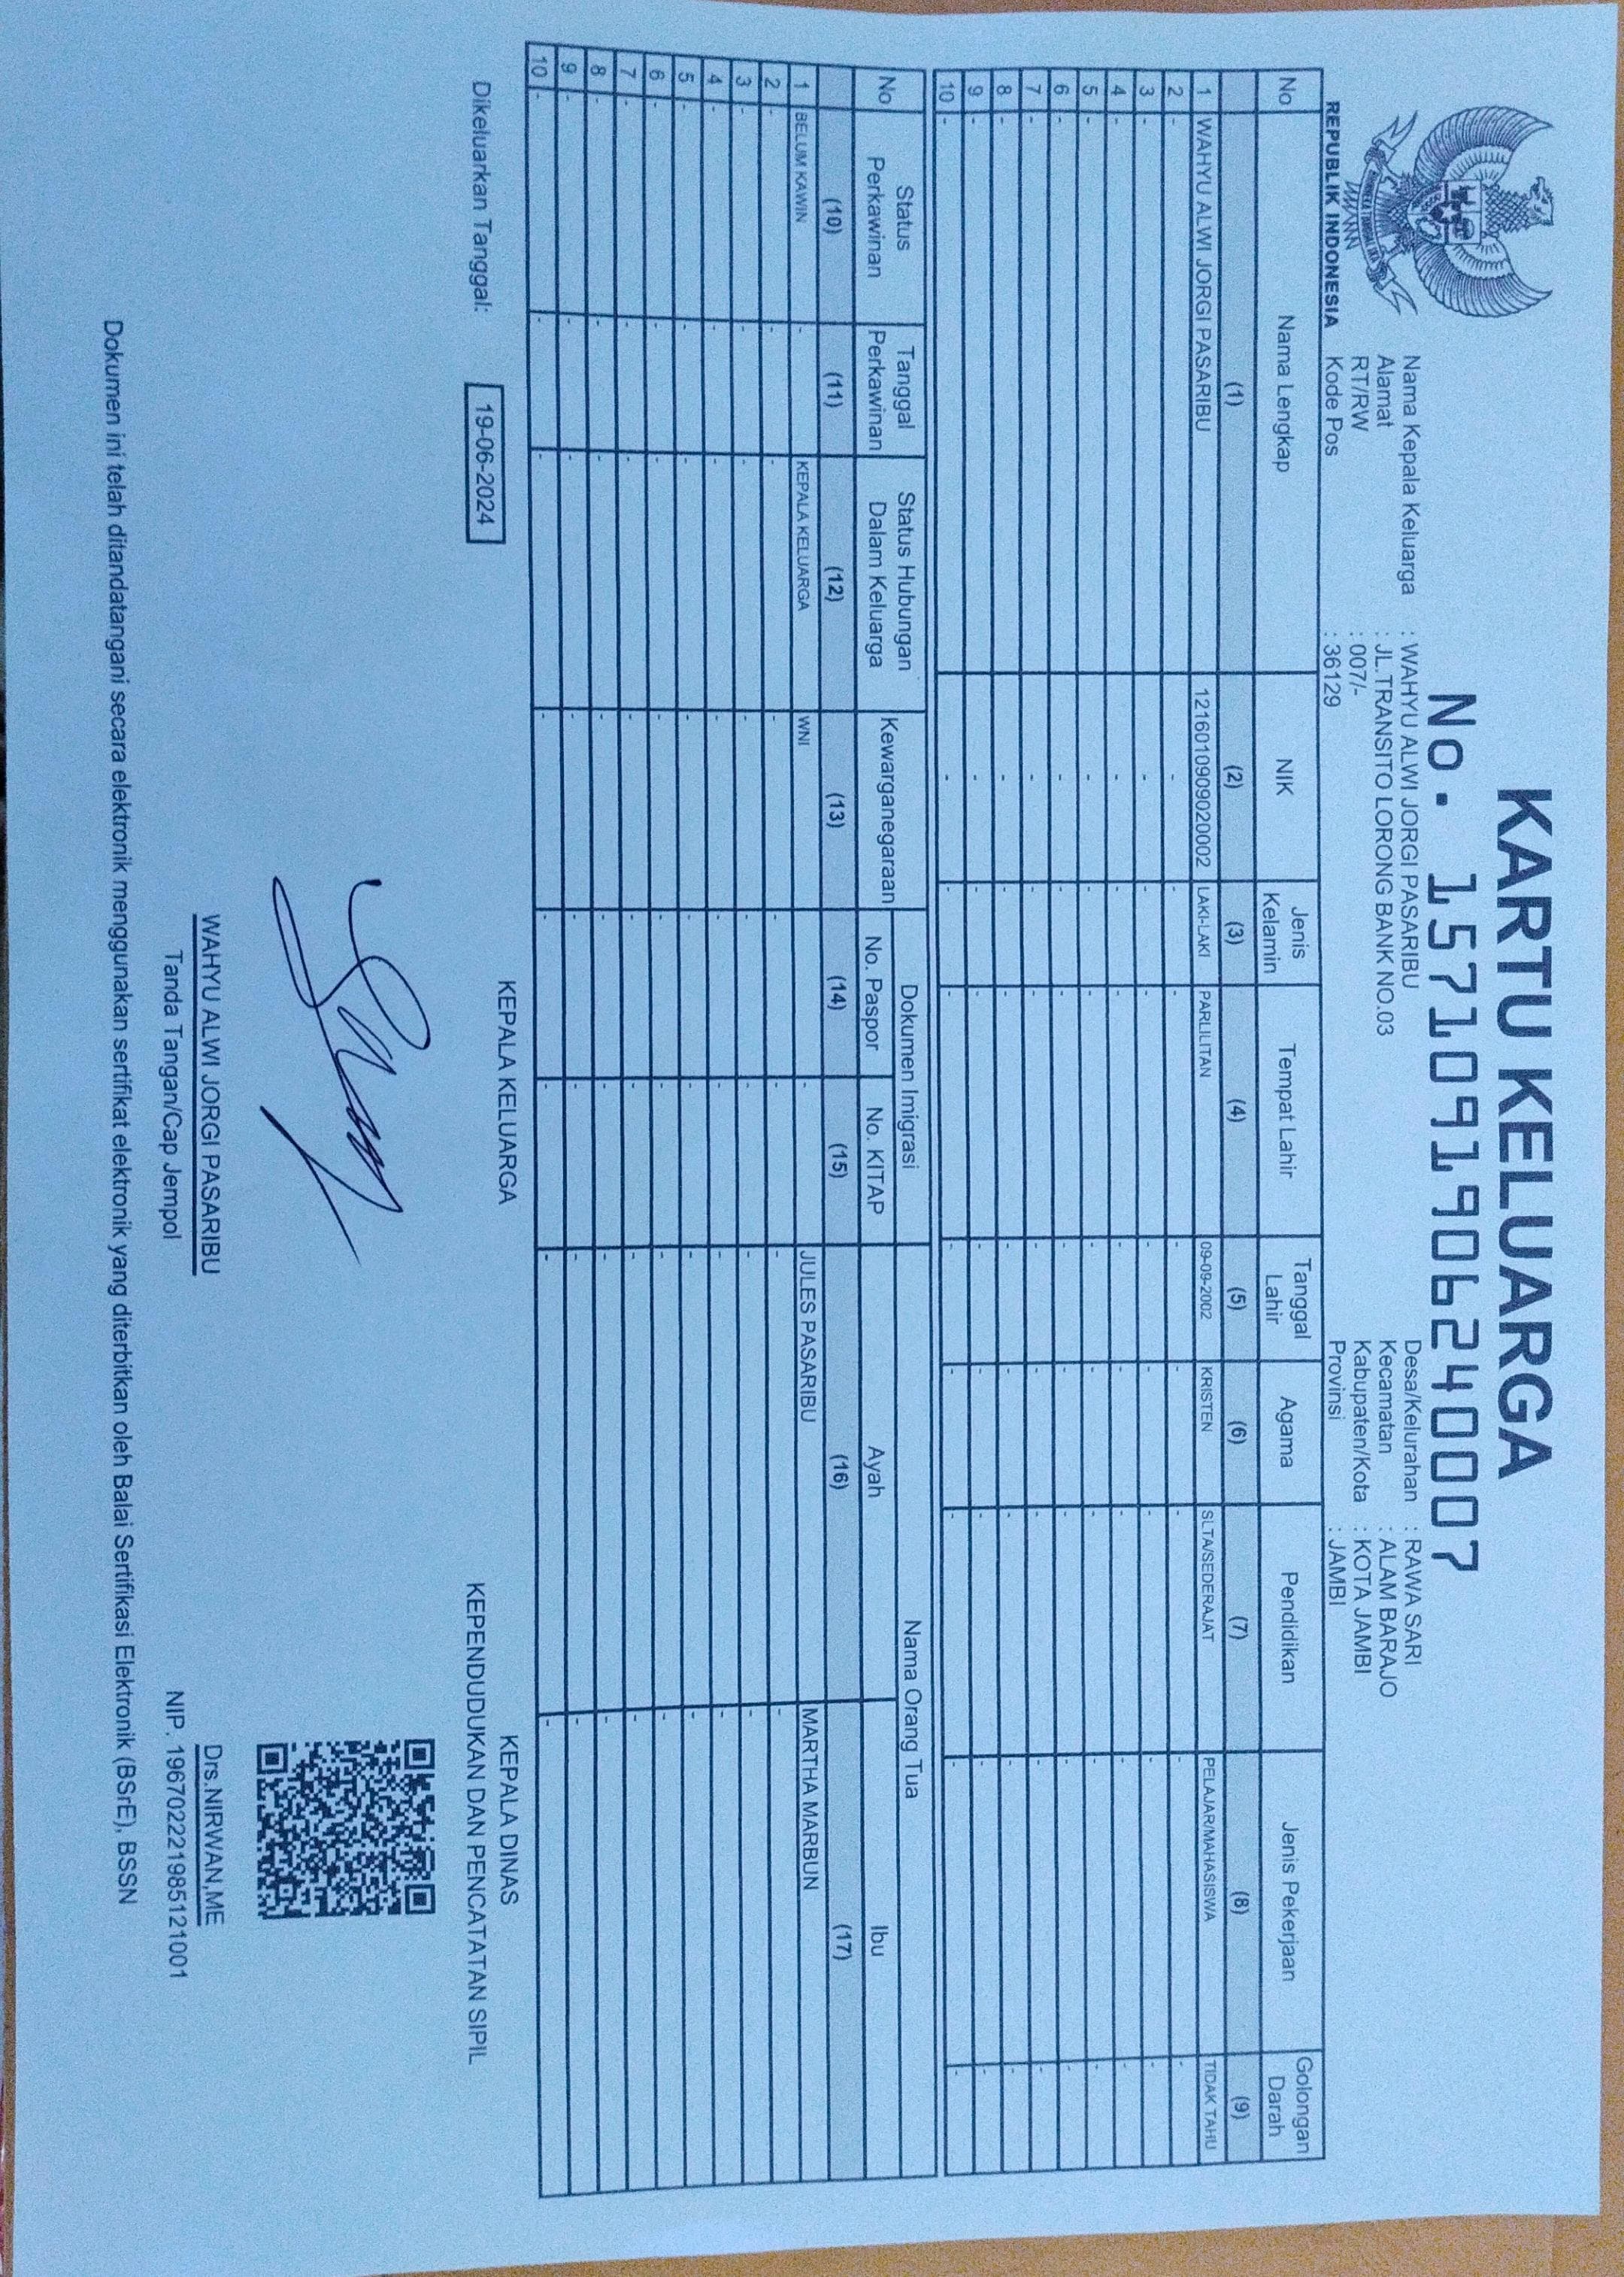 KARTU KELUARGA
No. 1571091906240007
REPUBLIK INDONESIA
Nama Kepala Keluarga : WAHYU ALWI JORGI PASARIBU
Alamat : JL.TRANSITO LORONG BANK NO.03
RT/RW : 007/-
Kode Pos : 36129
Desa/Kelurahan : RAWA SARI
Kecamatan : ALAM BARAJO
Kabupaten/Kota : KOTA JAMBI
Provinsi : JAMBI
No Nama Lengkap NIK Jenis Kelamin Tempat Lahir Tanggal Lahir Agama Pendidikan Jenis Pekerjaan Golongan Darah
(1) (2) (3) (4) (5) (6) (7) (8) (9)
1 WAHYU ALWI JORGI PASARIBU 1216010909020002 LAKI-LAKI PARLILITAN 09-09-2002 KRISTEN SLTA/SEDERAJAT PELAJAR/MAHASISWA TIDAK TAHU
2 - - - - - - - - -
3 - - - - - - - - -
4 - - - - - - - - -
5 - - - - - - - - -
6 - - - - - - - - -
7 - - - - - - - - -
8 - - - - - - - - -
9 - - - - - - - - -
10 - - - - - - - - -
No Status Perkawinan Tanggal Perkawinan Status Hubungan Dalam Keluarga Kewarganegaraan Dokumen Imigrasi Nama Orang Tua
No. Paspor No. KITAP Ayah Ibu
(10) (11) (12) (13) (14) (15) (16) (17)
1 BELUM KAWIN - KEPALA KELUARGA WNI - - JULES PASARIBU MARTHA MARBUN
2 - - - - - - - -
3 - - - - - - - -
4 - - - - - - - -
5 - - - - - - - -
6 - - - - - - - -
7 - - - - - - - -
8 - - - - - - - -
9 - - - - - - - -
10 - - - - - - - -
Dikeluarkan Tanggal: 19-06-2024
KEPALA KELUARGA
WAHYU ALWI JORGI PASARIBU
Tanda Tangan/Cap Jempol
KEPALA DINAS
KEPENDUDUKAN DAN PENCATATAN SIPIL
Drs.NIRWAN,ME
NIP. 196702221985121001
Dokumen ini telah ditandatangani secara elektronik menggunakan sertifikat elektronik yang diterbitkan oleh Balai Sertifikasi Elektronik (BSrE), BSSN